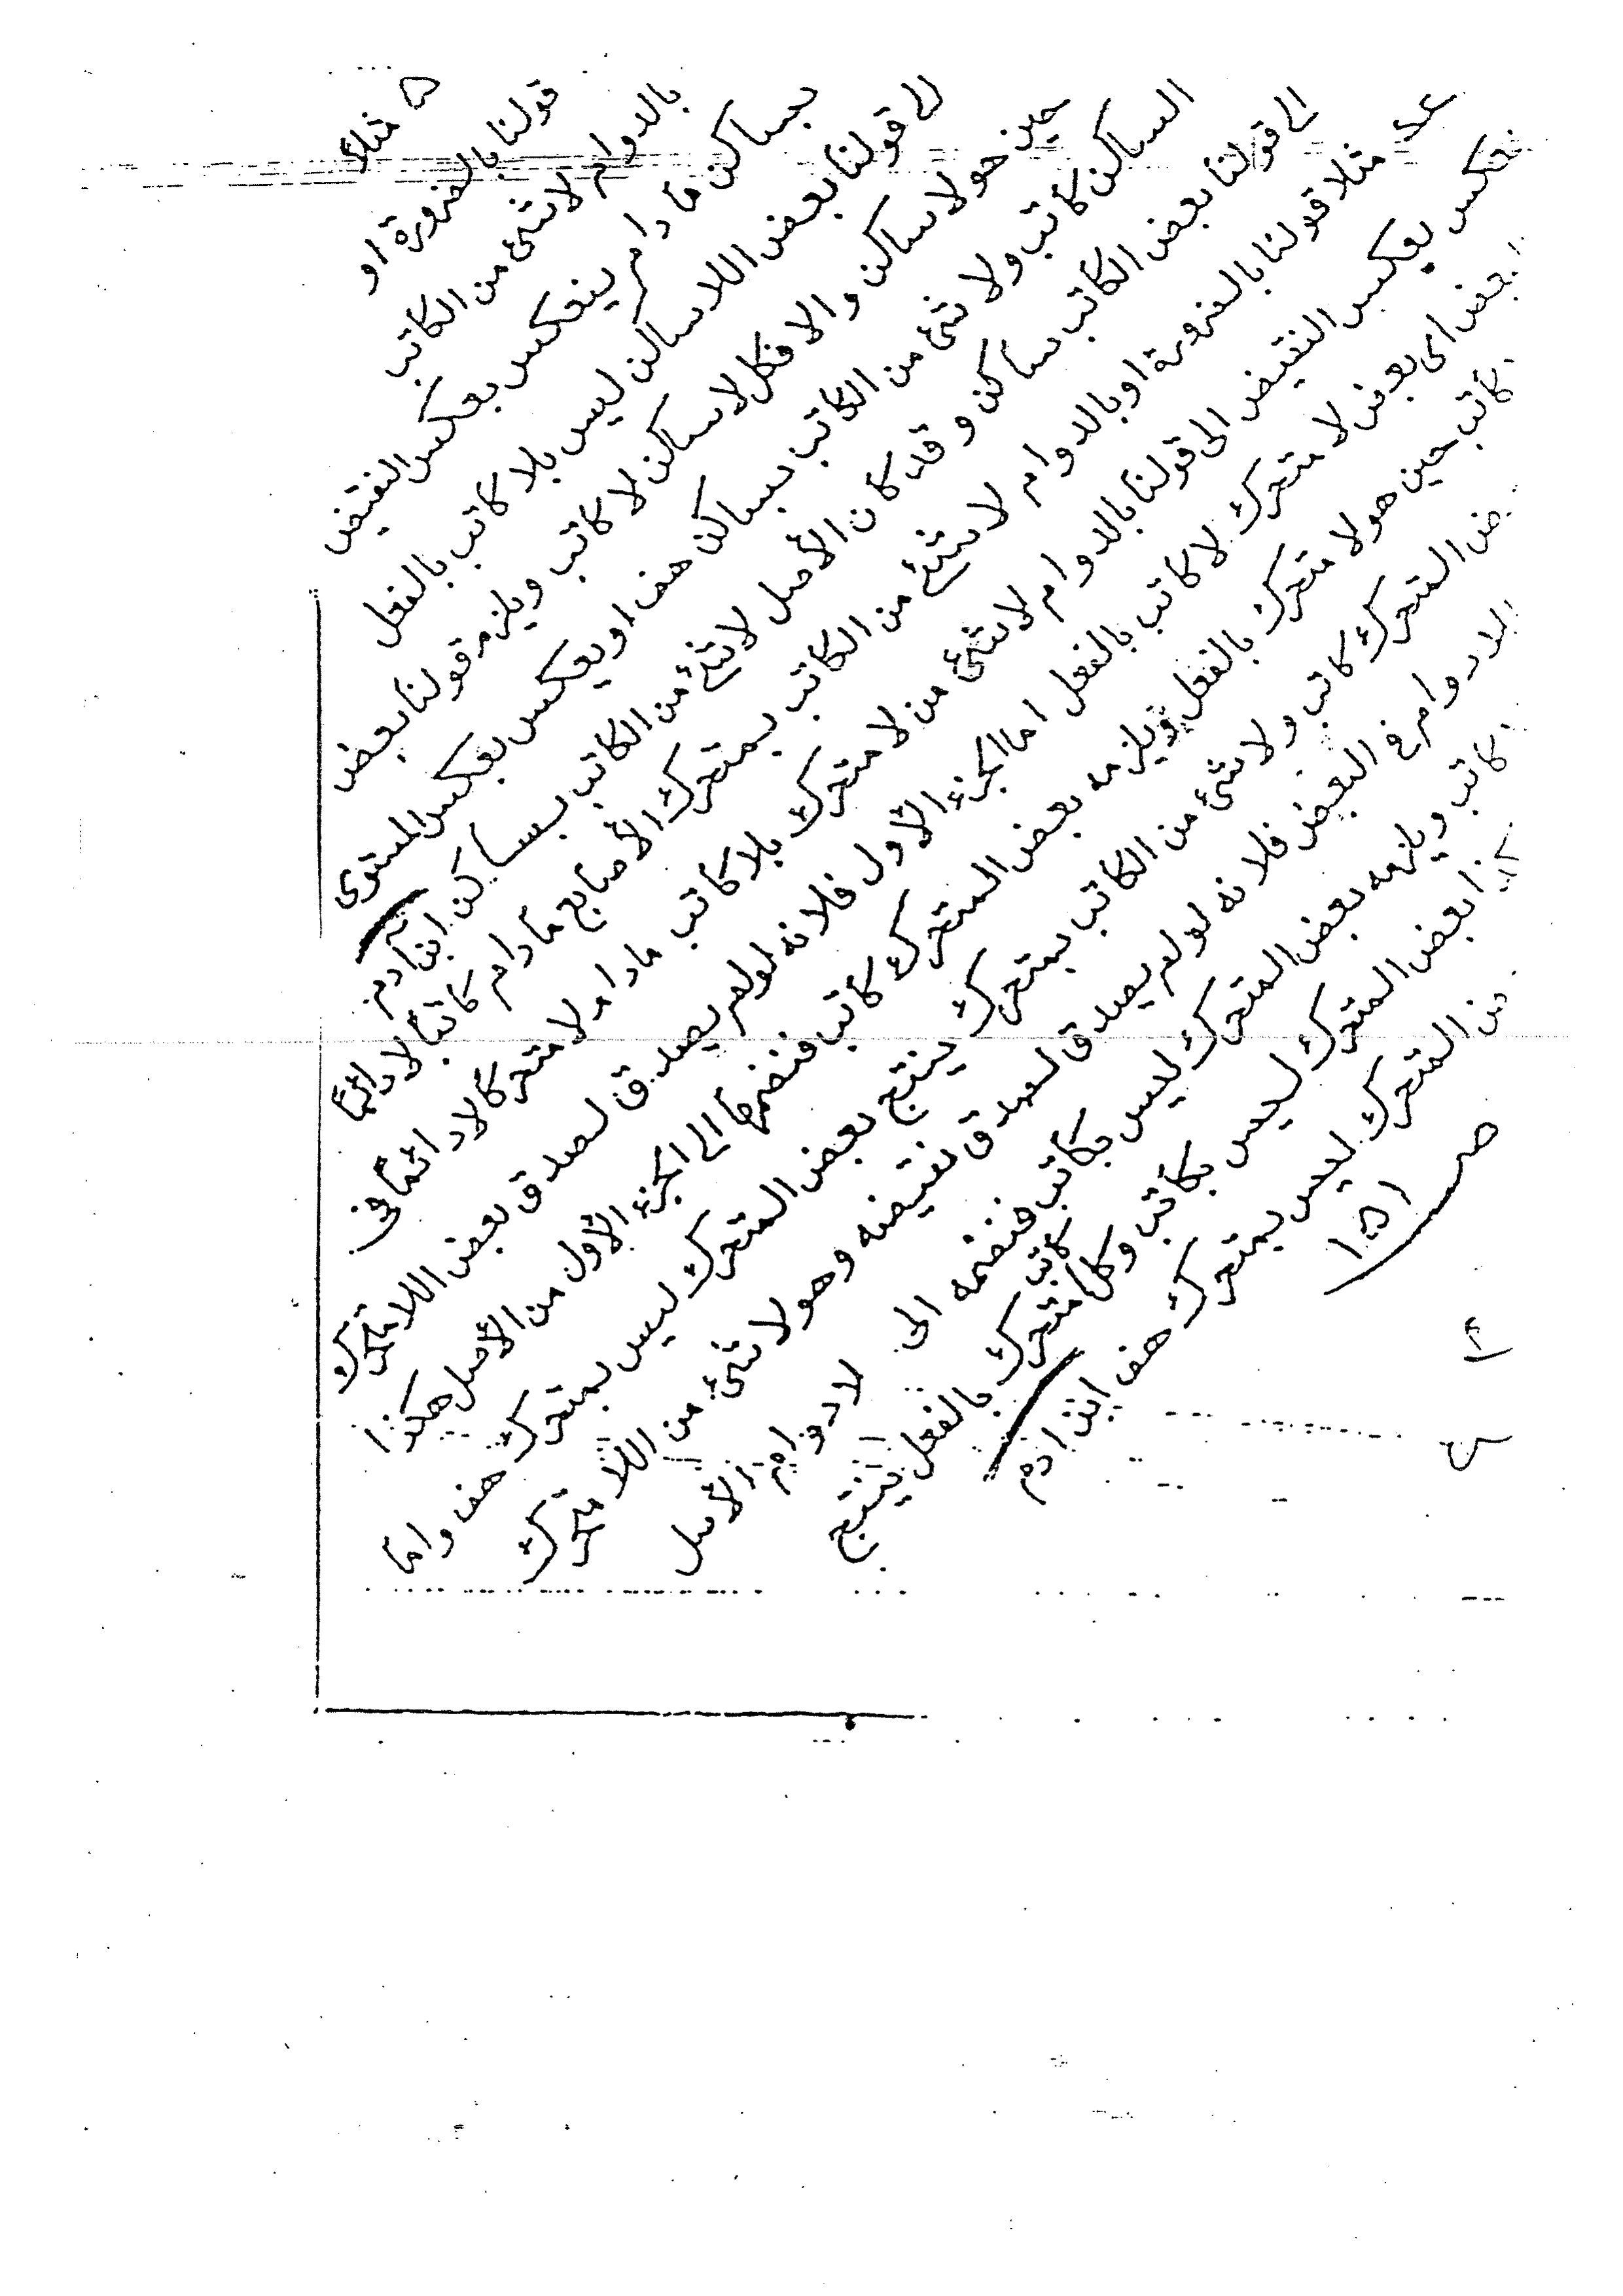 ه مثلاً
قولنا بالضرورة او
بالدوام لا شئ من الكاتب
بساكن ما دام ينعكس بعكس النقيض
الى قولنا بعض اللا ساكن ليس بلا كاتب بالفعل
حين هو لا ساكن والا فكل لا ساكن لا كاتب ويلزمه قولنا بعض
الساكن كاتب ولا شئ من الكاتب بساكن هف او بعكس بعكس المستوى
الى قولنا بعض الكاتب ساكن وقد كان الأصل لا شئ من الكاتب بساكن ابن آدم
عه مثلا قولنا بالضرورة او بالدوام لا شئ من الكاتب بمتحرك الأصابع ما دام كاتبًا لا دائمًا
فعكس بعكس النقيض الى قولنا بالدوام لا شئ من لا متحرك بلا كاتب ما دام لا متحركا لا دائمًا في
البعض اى بعض لا متحرك لا كاتب بالفعل اما الجزء الأول فلانه لو لم يصدق لصدق بعض اللا متحرك
كاتب حين هو لا متحرك بالفعل ويلزمه بعض المتحرك كاتب فنضمها الى الجزء الأول من الأصل هكذا
بعض المتحرك كاتب ولا شئ من الكاتب بمتحرك ينتج بعض المتحرك ليس بمتحرك هف واما
اللا دوام في البعض فلانه لو لم يصدق لصدق نقيضه وهو لا شئ من اللا متحرك
كاتب ويلزمه بعض المتحرك ليس بكاتب فنضمه الى لا دوام الأصل
هكذا بعض المتحرك ليس بكاتب وكل كاتب متحرك بالفعل ينتج
من المتحرك ليس بمتحرك هف ابن ادم
ص ١٥١